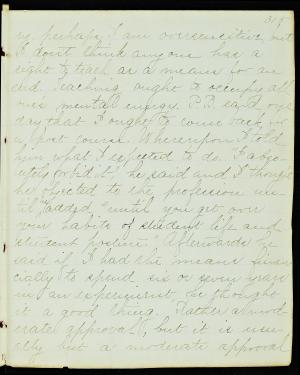 ng, perhaps I am oversensitive, but
I don't think anyone has a
right to teach as a means for an
end. Teaching ought to occupy all
one's mental energy. P.B. said one
day that I ought to come back for
a post course. Whereupon I told
him what I expected to do. "I abso-
lutely forbid it," he said and I thought
he objected to the profession un-
til added, "until you get over
your habits of student life and
student posture." Afterwards he
said if I had the means finan-
cially to spend six or seven years
in an experiment he thought
it a good thing. Rather a mod-
erate approval, but it is usu-
ally but a moderate approval